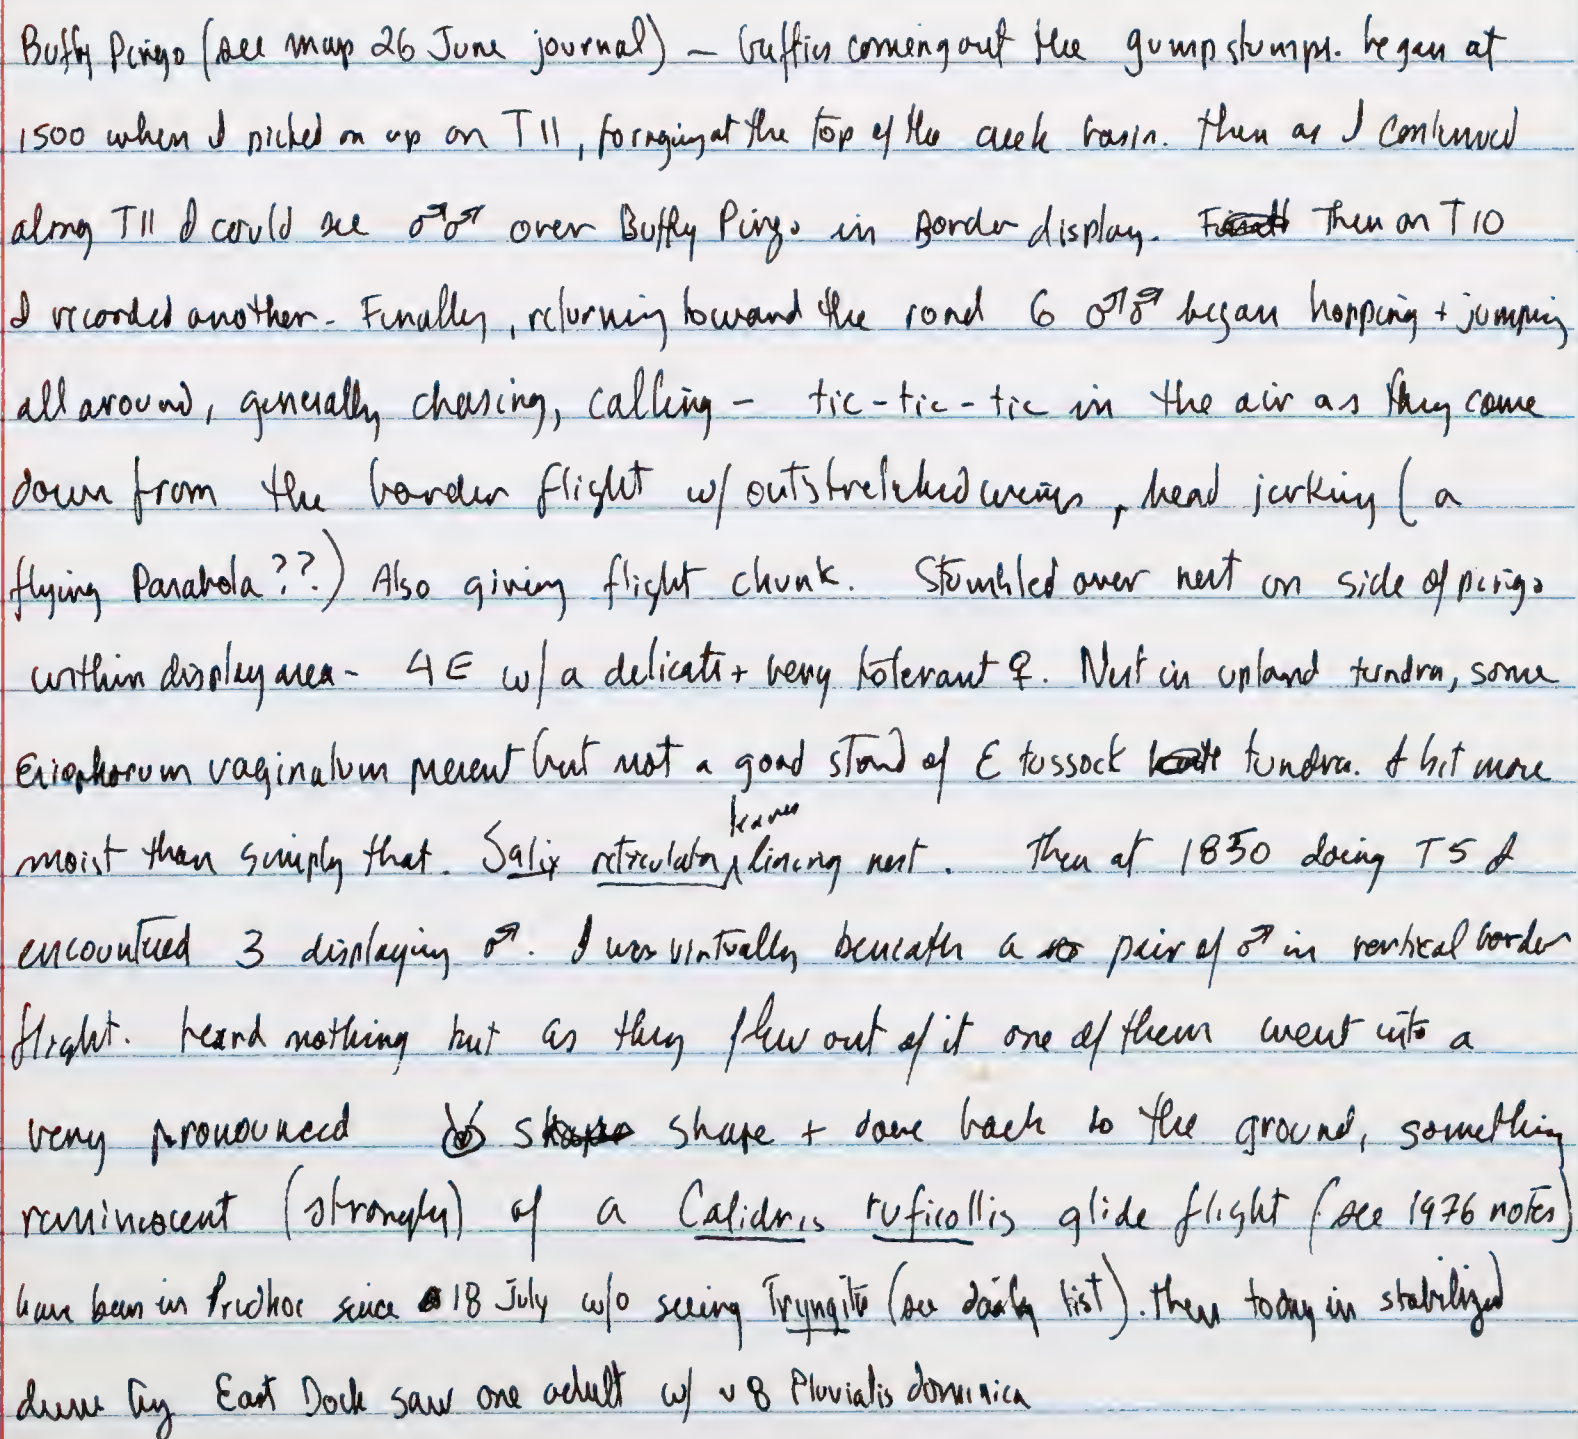 Buffy Pingo (see map 26 June journal) – buffies coming out the gumpstumps. began at
1500 when I picked on up on T11, foraging at the top of the creek basin. Then as I continued
along T11 I could see ♂♂ over Buffy Pingo in Border display. Then on T10
I recorded another. Finally, returning toward the road 6 ♂♂ began hopping + jumping
all around, generally chasing, calling – tic-tic-tic in the air as they come
down from the border flight w/ outstretched wings, head jerking (a
flying Parabola??) Also giving flight chunk. Stumbled over nest on side of pingo
within display area – 4E w/ a delicate + very tolerant ♀. Nest in upland tundra, some
Eriophorum vaginatum present but not a good stand of E tussock tundra. A bit more
moist than simply that. Salix reticulata leaves lining nest. Then at 1850 doing T5 I
encountered 3 displaying ♂. I was virtually beneath a pair of ♂ in vertical border
flight. heard nothing but as they flew out of it one of them went into a
very pronounced shape + dove back to the ground, something
reminiscent (strongly) of a Calidris ruficollis glide flight (see 1976 notes)
have been in Prudhoe since 18 July w/o seeing Tryngites (see daily list). Then today in stabilized
dune by East Dock saw one adult w/ ~8 Pluvialis dominica